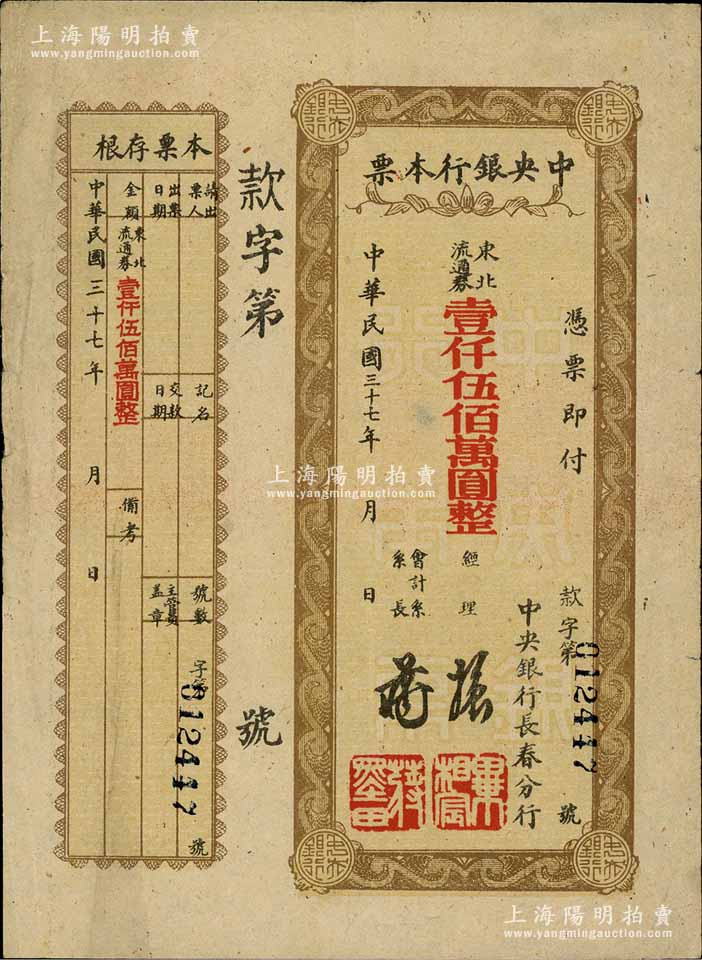 上海陽明拍賣
www.yangmingauction.com
中央銀行本票
憑票即付
東北
流通券
壹仟伍佰萬圓整
中華民國三十七年 月 日
款字第 012447 號
中央銀行長春分行
經理
會計系
系長
款字第 號
本票存根
請出
票人
出票
日期
金額
東北
流通券
壹仟伍佰萬圓整
中華民國三十七年 月 日
記名
交款
日期
備考
號數 字第 012447 號
主管員
蓋章
上海陽明拍賣
www.yangmingauction.com
上海陽明拍賣
www.yangmingauction.com